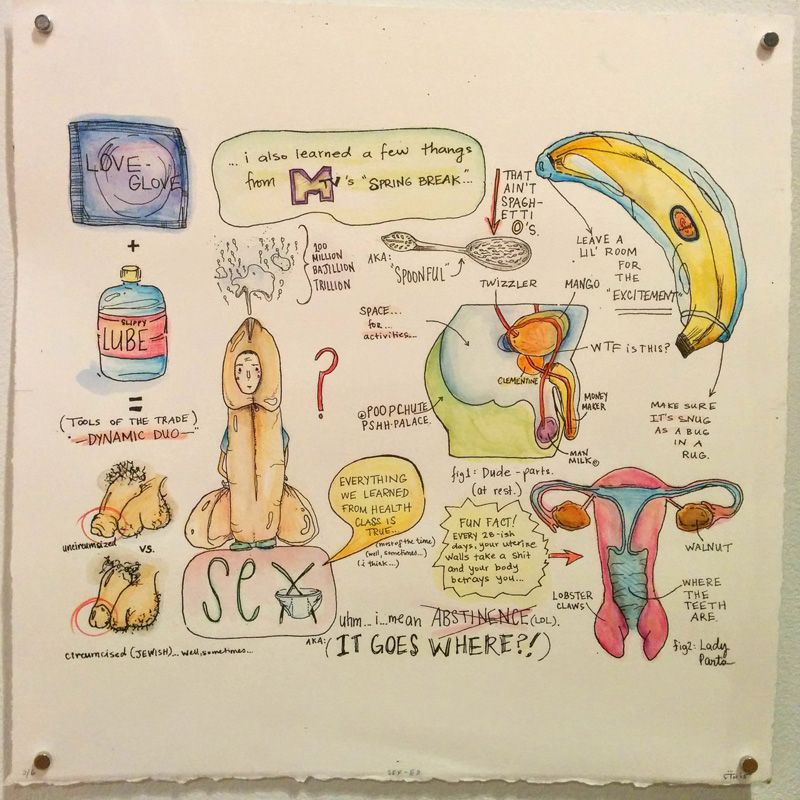 LOVE-
GLOVE
+
SLIPPY
LUBE
=
(TOOLS OF THE TRADE)
DYNAMIC DUO
uncircumsized
vs.
circumcised (JEWISH)... well, sometimes...
...i also learned a few thangs
from MTV's "SPRING BREAK"...
100
MILLION
BAJILLION
TRILLION
?
AKA:
"SPOONFUL"
THAT
AIN'T
SPAGH-
ETTI
O'S.
LEAVE A
LIL' ROOM
FOR
THE
"EXCITEMENT"
MAKE SURE
IT'S SNUG
AS A BUG
IN A
RUG.
SPACE...
for...
activities...
TWIZZLER
MANGO
WTF is THIS?
CLEMENTINE
MONEY
MAKER
POOPCHUTE
PSHH-PALACE.
MAN
MILK©
fig1: Dude-parts.
(at rest.)
EVERYTHING
WE LEARNED
FROM HEALTH
CLASS IS
TRUE...
(most of the time)
(well, sometimes...)
(i think...)
FUN FACT!
EVERY 28-ish
days, your uterine
walls take a shit
and your body
betrays you...
WALNUT
LOBSTER
CLAWS
WHERE
THE
TEETH
ARE.
fig2: Lady
Parts
sex
uhm... i... mean ABSTINENCE (LOL).
AKA: (IT GOES WHERE?!)
2/6
SEX-ED